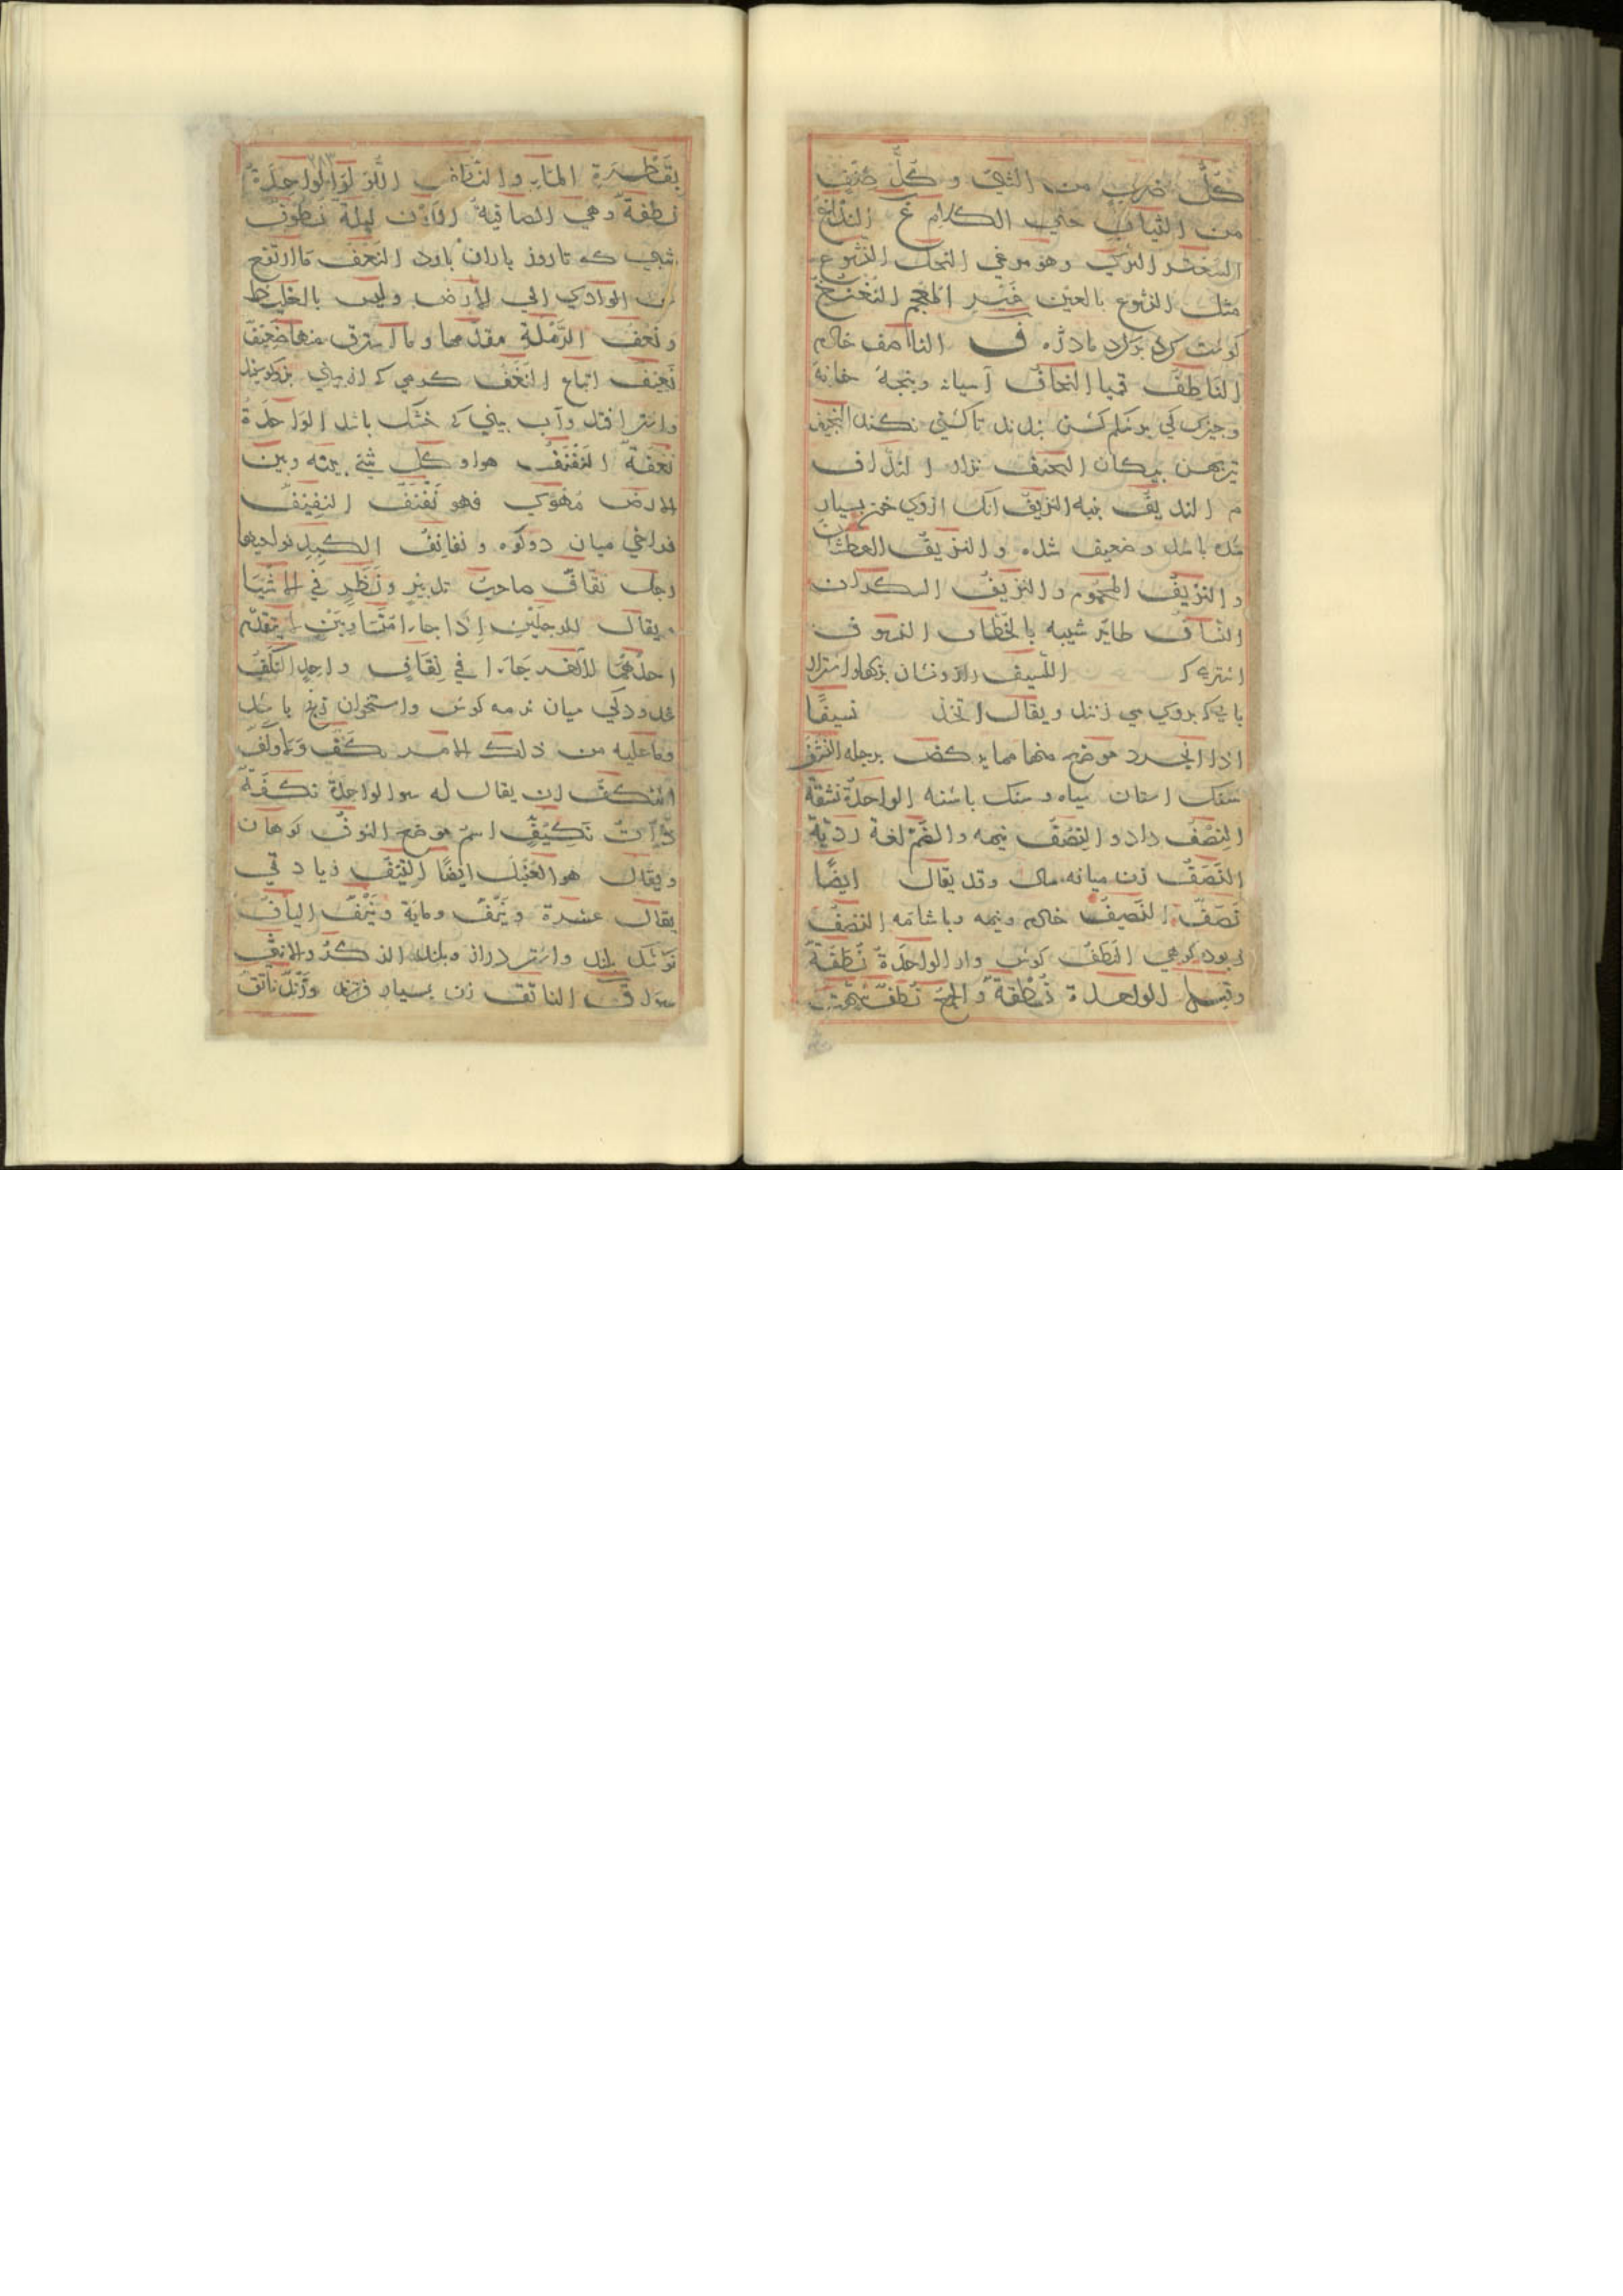 كلّ ضرب من الشيء وكلّ صنف
من الثياب حتي الكلام غ الندغ
السعتر البرّي وهو مرعي النحل النشوع
مثل النزوع بالعين غير المعجم النغنغ
كوشت كرد بر كرد ملاژه ف الناصف خادم
الناطف قبيا النجاف آسيانه وپنجهٔ خانه
وچيزي كي بر شكم كشن بندند تا كشني نكند النجيف
تير پهن پيكان النحيف نزار النداف
م النديف پنبه النزيف انك ازوي خون بسيار
شده باشد وضعيف شده والنزيف العطشان
والنزيف المحموم والنزيف السكران
النساف طاير شبيه بالخطاف النسوف
اشتري كـ النسيف راز ونشان
باي كـ بروي مي زنند ويقال اتخذ نسيفًا
اذا انجرد موضع منها مما يركض برجله النشف
سنك استان سياه وسنك پاشنه الواحدة نشفة
النصف داد والنصف نيمه والضم لغة رديّة
النصف زن ميانه سال وقد يقال ايضًا
نصف النصيف خادم ونيمه وباشامه النضف
پودنه كوهي النطف كوش وار الواحدة نطفة
وقيل الواحدة نطفة والجمع نطف
بقاطرة الماء والنطاف اللؤلؤ الواحدة
نطفة وهي الصافية اللون ليلة نطوف
شبي كه تا روز باران بارد النعف ما ارتفع
من الوادي الي الارض وليس بالغليظ
ونعف الرملة مقدمها وما استرق منها ضعيف
نعيف اتباع النغف كرمي كه از بيني بز وكوسپند
واشتر افتد وآب بيني كه خشك باشد الواحدة
نغفة النفنف هوا وكل شيء بينه وبين
الارض مهوي فهو نفنف النفنف
فراخي ميان دو كوه ونفانف الكبد نواحيها
رجل نقاف صاحب تدبير ونظر في الاشيا
ويقال للرجلين اذا جاءا متساويين لا يتقدم
احدهما الآخر جاءا في نقاف واحد النكف
غدودكي ميان نرمه كوش واستخوان زنخ باشد
وما عليه من ذلك الامر نكف ولا وكف
النكف ان يقال له سوا الواحدة نكفة
ذات نكيف اسم موضع النوف كوهان
ويقال هو العنبل ايضًا النيف زيادتي
يقال عشرة ونيف وماية ونيف النياف
كوشك بلند واشتر دراز وبلند الذكر والانثي
سوا ق الناتق زن بسيار فرزند وزند ناتق